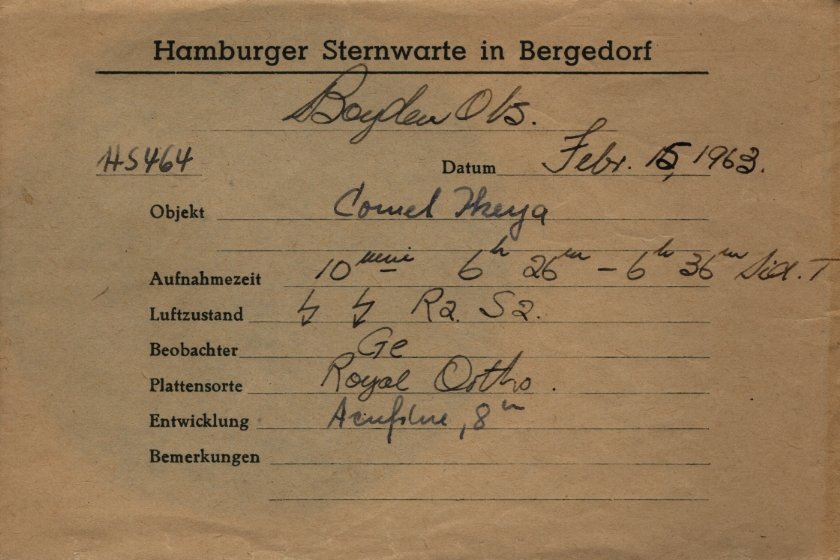 Hamburger Sternwarte in Bergedorf
Boyden Obs.
HS464 Datum Febr. 15, 1963.
Objekt Comet Ikeya
Aufnahmezeit 10 min 6h 26m – 6h 36m Sid. T
Luftzustand R2. S2.
Beobachter Ge
Plattensorte Royal Ortho.
Entwicklung 8m
Bemerkungen